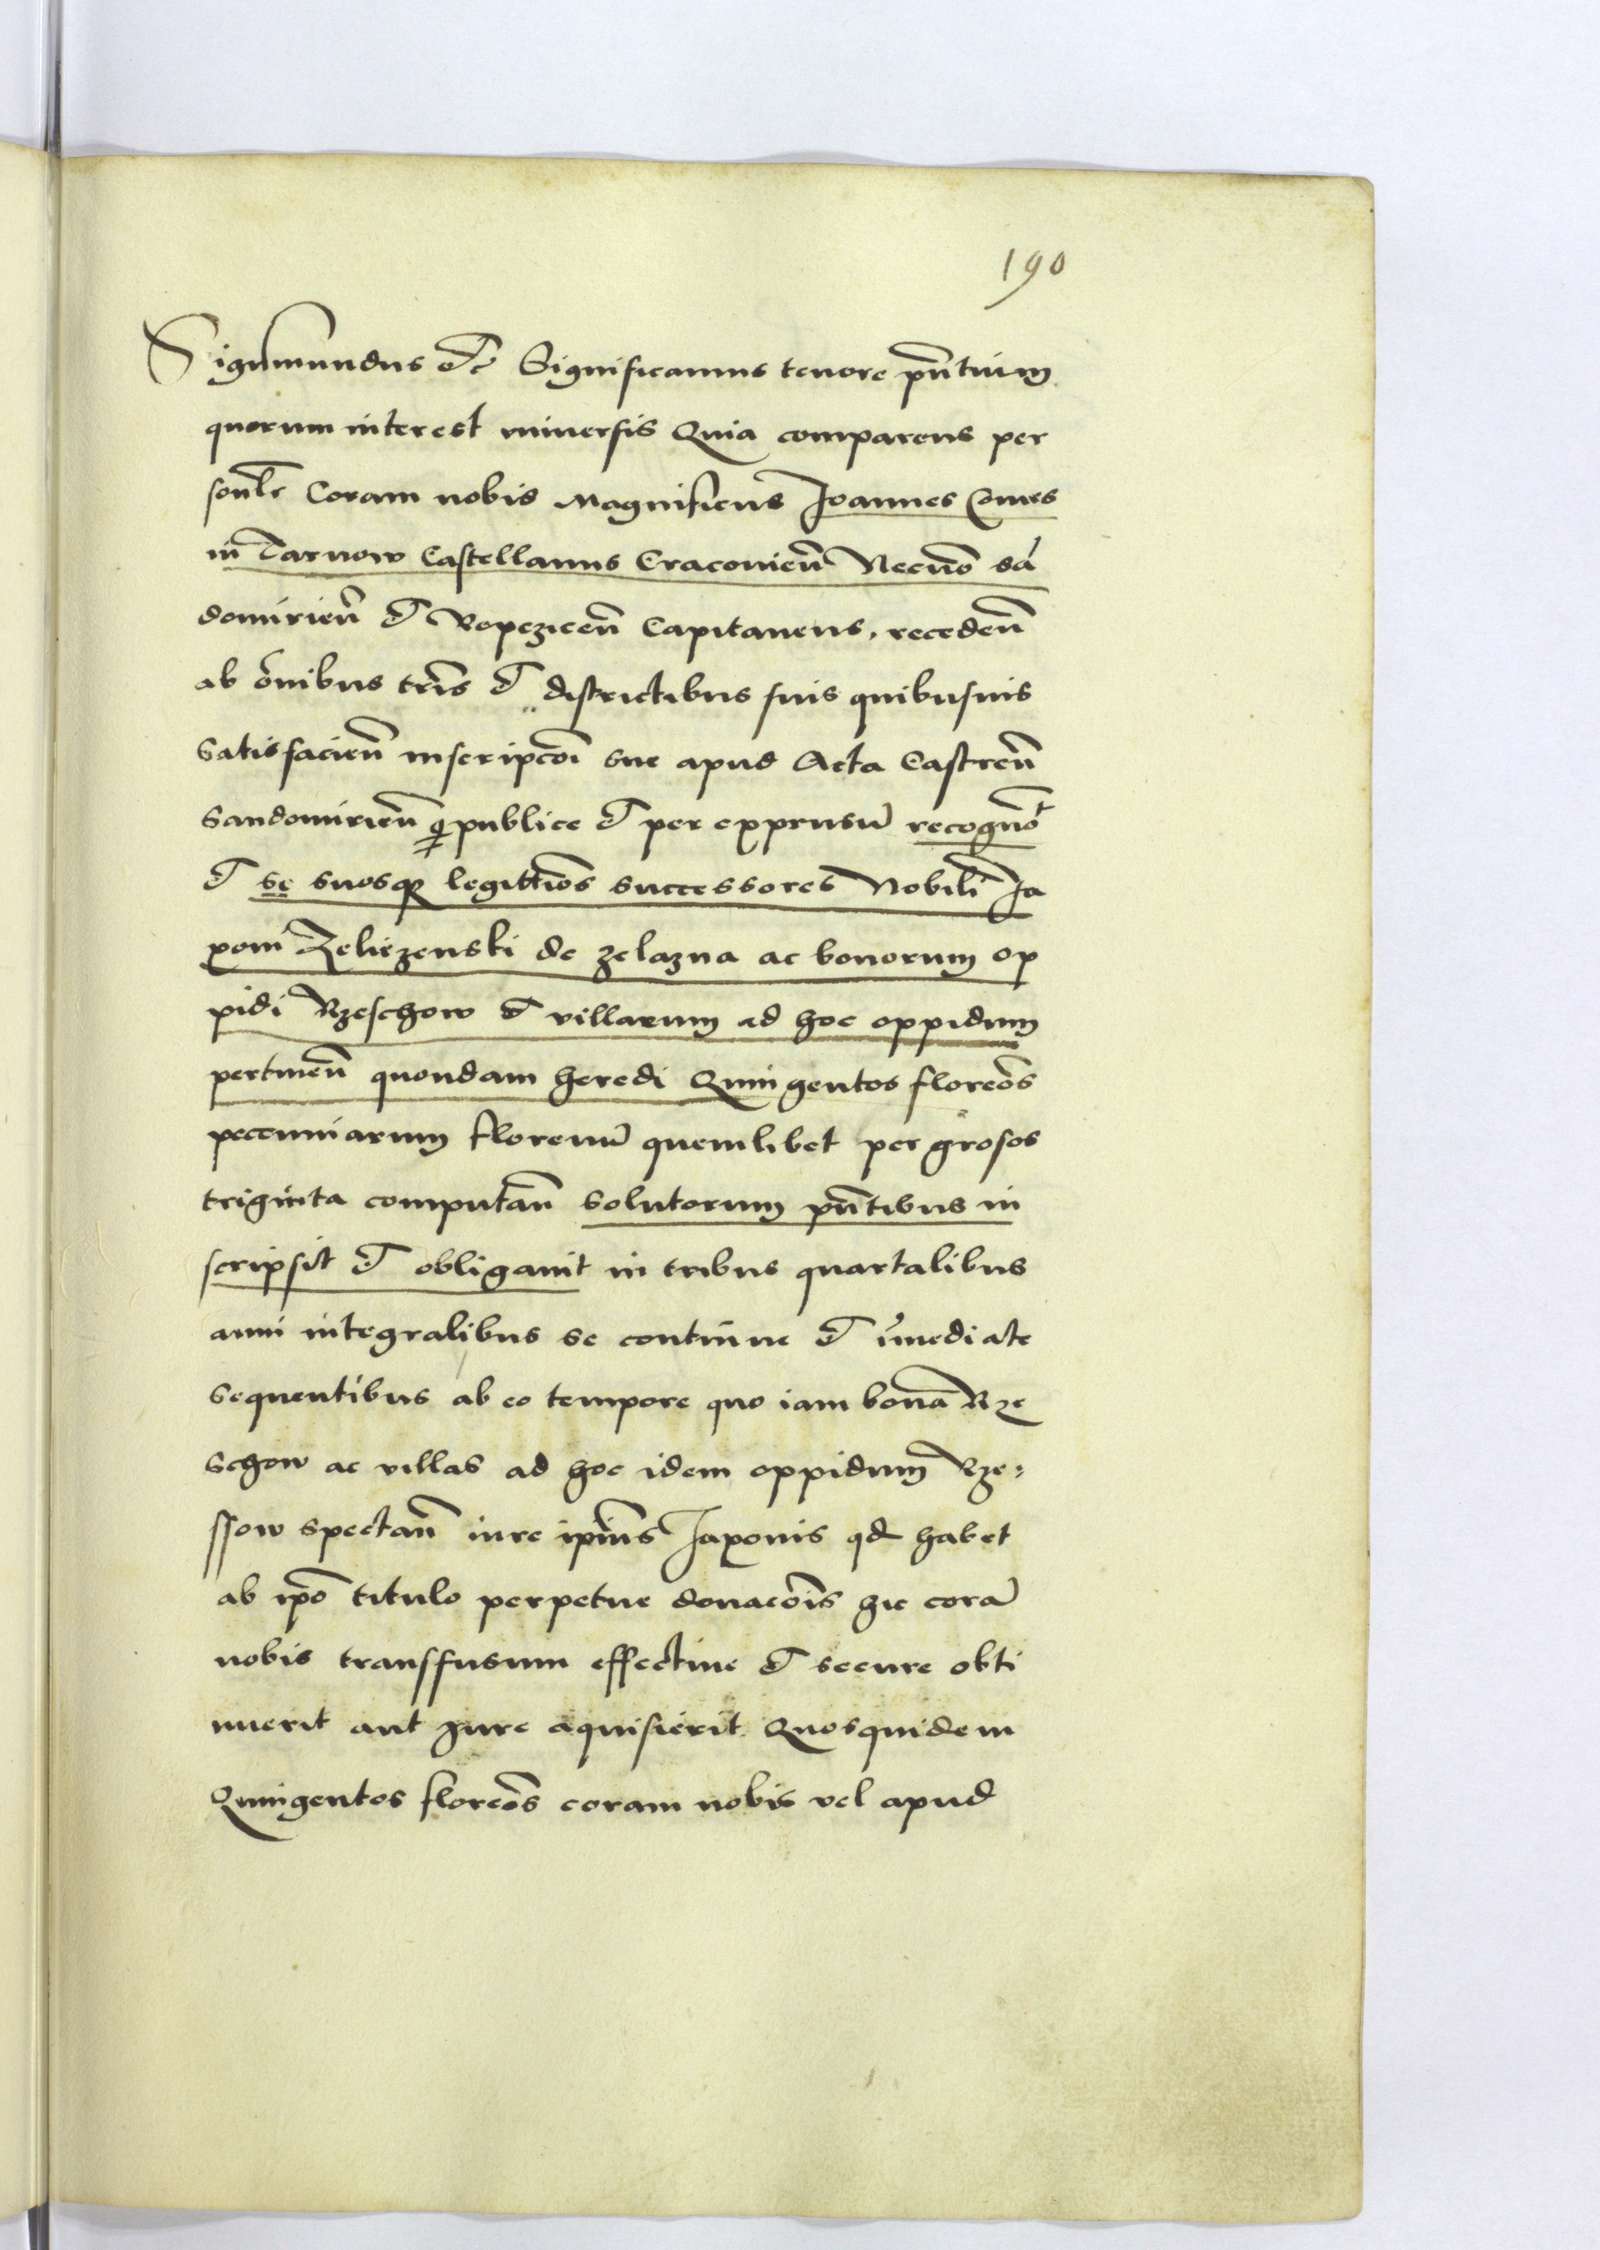 190
Sigismundus etc Significamus tenore pñtium
quorum interest universis Quia comparens per
sonlr Coram nobis Magnificus Joannes Comes
in Tarnow Castellanus Cracovieñ Necnõ sã
domirieñ et Ropeziceñ Capitaneus, recedeñ
ab õnibus tris et districtibus suis quibusuis
satisfacieñ inscripcõi sue apud Acta Castreñ
Sandomirieñ q publice et per expressũ recognõt
et se suosq legittiõs successores Nobili Ja
xoni Zeliezenski de zelazna ac bonorum op
pidi Rzeschow et villarum ad hoc oppidum
pertineñ quondam heredi Quingentos floreõs
peccuniarum florenũ quemlibet per grosos
triginta computañ solutorum pñtibus in
scripsit et obligauit in tribus quartalibus
anni integralibus se continue et ĩmediate
sequentibus ab eo tempore quo iam bona Rze
schow ac villas ad hoc idem oppidum Rze:
ssow spectañ iure ipius Jaxonis qd habet
ab ipõ titulo perpetue donacõis hic corã
nobis transffusum effectiue et secure obti
nuerit aut Jure aquisierit Quosquidem
Quingentos floreõs coram nobis vel apud